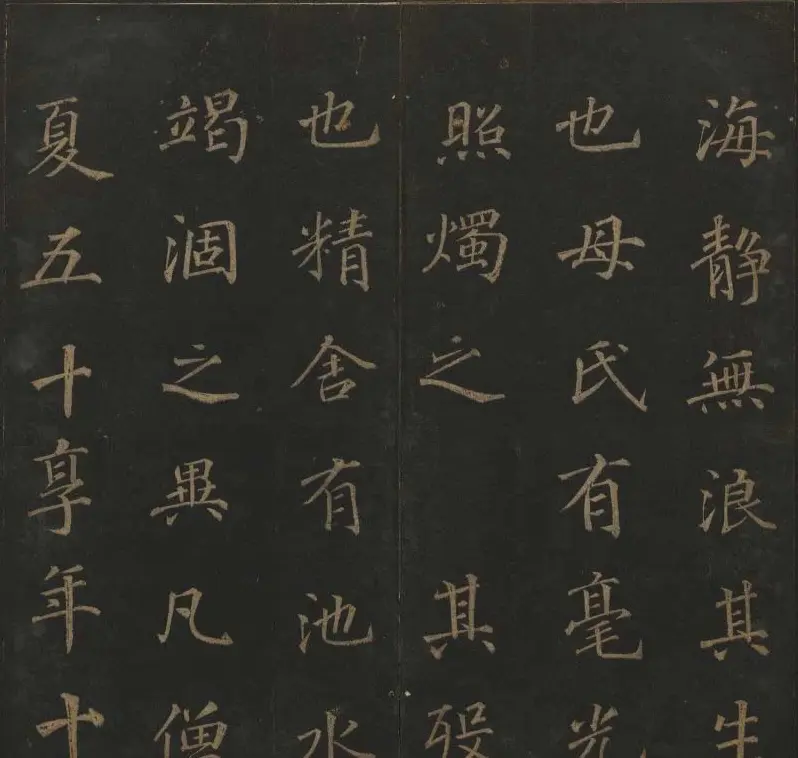 海静無浪其生
也母氏有毫光
照燭之其歿
也精舍有池水
竭涸之異凡僧
夏五十享年十